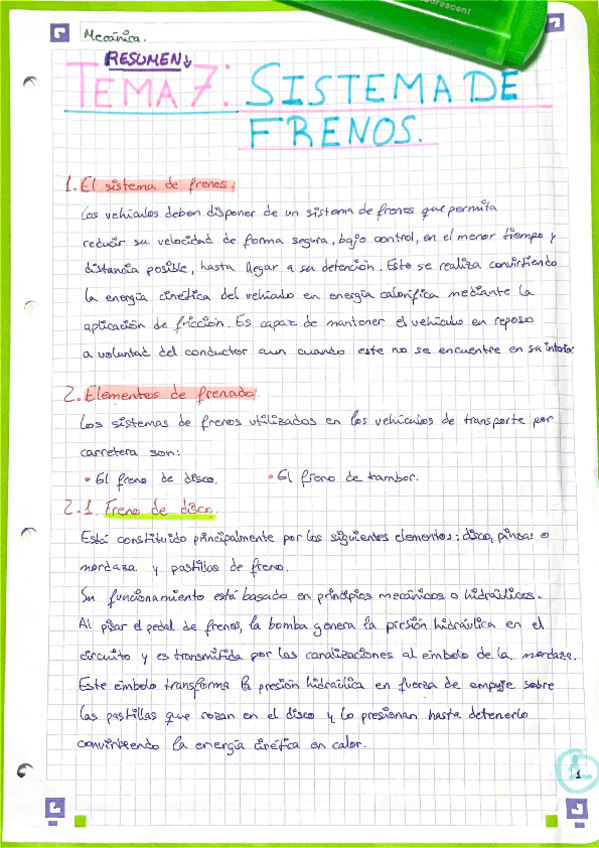 uorescent
Mecánica.
RESUMEN
TEMA 7: SISTEMA DE
FRENOS.
1. El sistema de frenos.
Los vehículos deben disponer de un sistema de frenos que permita
reducir su velocidad de forma segura, bajo control, en el menor tiempo y
distancia posible, hasta llegar a su detención. Esto se realiza convirtiendo
la energía cinética del vehículo en energía calorífica mediante la
aplicación de fricción. Es capaz de mantener el vehículo en reposo
a voluntad del conductor aun cuando este no se encuentre en su interior
2. Elementos de frenado.
Los sistemas de frenos utilizados en los vehículos de transporte por
carretera son:
• El freno de disco. • El freno de tambor.
2.1. Freno de disco.
Está constituido principalmente por los siguientes elementos: disco, pinzas o
mordaza y pastillas de freno.
Su funcionamiento está basado en principios mecánicos o hidráulicos.
Al pisar el pedal de frenos, la bomba genera la presión hidráulica en el
circuito y es transmitida por las canalizaciones al émbolo de la mordaza.
Este émbolo transforma la presión hidráulica en fuerza de empuje sobre
las pastillas que rozan en el disco y lo presionan hasta detenerlo
convirtiendo la energía cinética en calor.
1